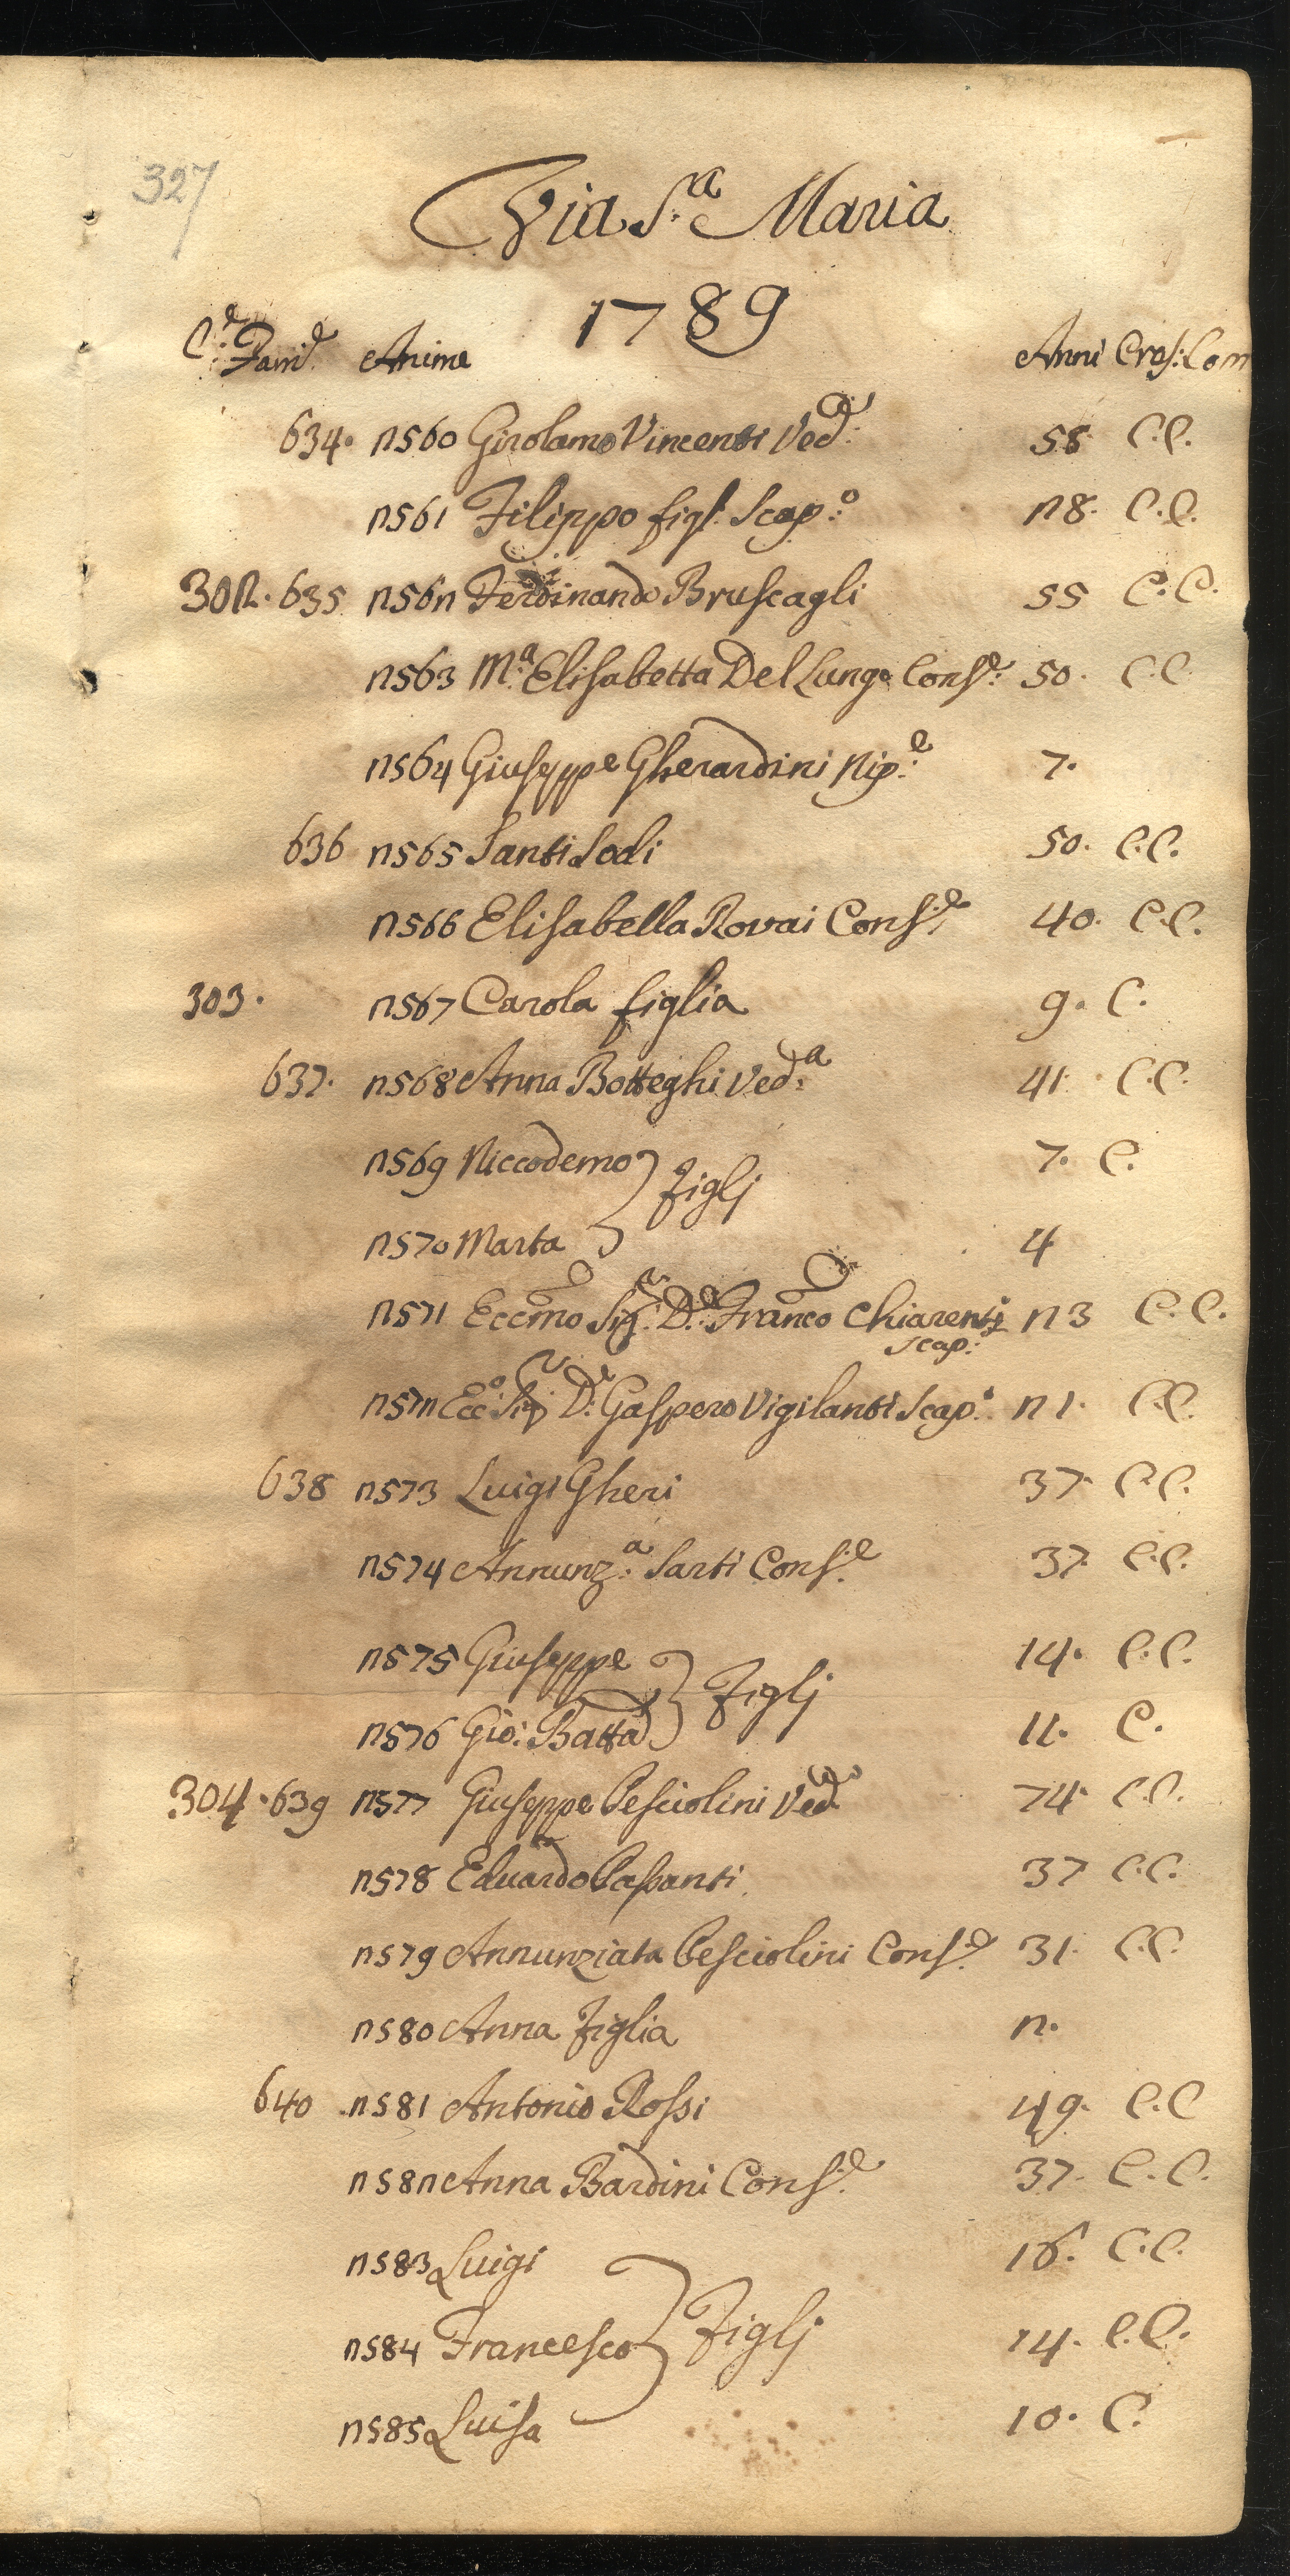 327
Via S.ª Maria
1789
C.e Fami.e Anime Anni Cres: Com
634. 2560 Girolamo Vincenti Ved:o 58 C.C.
2561 Filippo figl. Scap:o 28. C.C.
302. 635 2562 Ferdinando Bruscagli 55 C.C.
2563 M:a Elisabetta Del Lungo Cons:e 50. C.C
2564 Giuseppe Gherardini Nip:e 7.
636 2565 Santi Sodi 50. C.C.
2566 Elisabella Rovai Cons:e 40. C.C.
303. 2567 Carola figlia 9. C.
637. 2568 Anna Botteghi Ved:a 41. C.C.
2569 Niccodemo 7. C.
Figlj
2570 Marta 4
2571 Eccmo Sig:r D:e Franco Chiarenti 23 C.C.
scap:
2572 Ecc:o Sig:r D:r Gaspero Vigilanti Scap:o 21. C.C.
638 2573 Luigi Gheri 37. C.C.
2574 Annunz:a Sarti Cons:e 37. C.C.
2575 Giuseppe 14. C.C.
Figlj
2576 Gio: Batta 11. C.
304. 639 2577 Giuseppe Pesciolini Ved:o 74. C.C.
2578 Eduardo Passanti 37 C.C.
2579 Annunziata Pesciolini Cons:e 31. C.C.
2580 Anna Figlia 2.
640 2581 Antonio Rossi 49. C.C
2582 Anna Bardini Cons:e 37. C.C.
2583 Luigi 16. C.C.
2584 Francesco Figlj 14. C.C.
2585 Luisa 10. C.